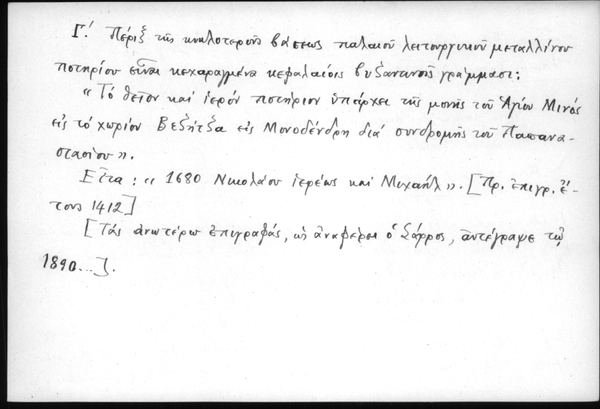 Γ.´ Πέριξ τῆς κυκλοτεροῦς βάσεως παλαιοῦ λειτουργικοῦ μεταλλίνου
ποτηρίου εἶναι κεχαραγμένα κεφαλαίοις βυζαντινοῖς γράμμασι:
« Τὸ θεῖον καὶ ἱερόν ποτήριον ὑπάρχει τῆς μονῆς τοῦ Ἁγίου Μινᾶς
εἰς τὸ χωρίον Βεζήτζα εἰς Μονοδένδρη διά συνδρομῆς τοῦ Παπανα-
στασίου ».
Εἶτα: « 1680 Νικολάου ἱερέως καὶ Μιχαήλ ». [Πρ. ἐπιγρ. ἔ-
τους 1412]
[Τάς ἀνωτέρω ἐπιγραφάς, ὡς ἀναφέρει ὁ Σάρρος, ἀντέγραψε τῷ
1890...].